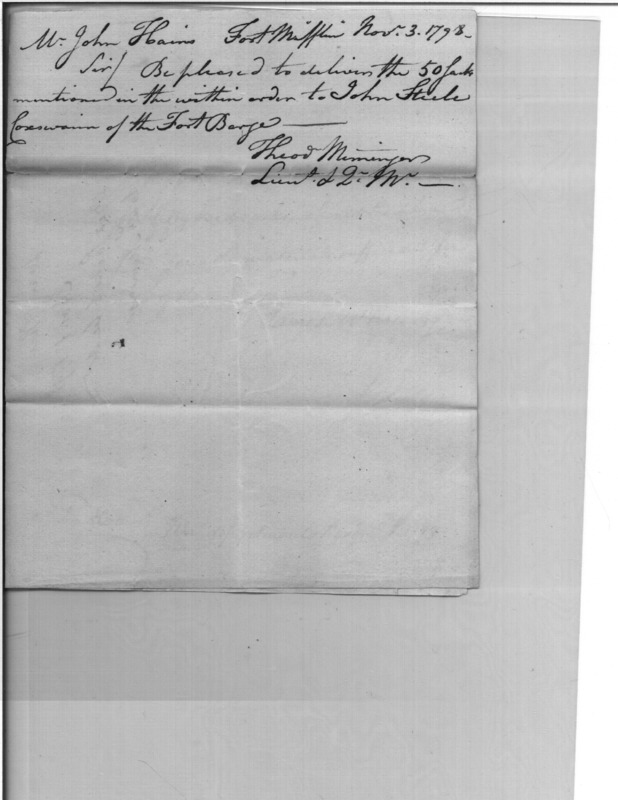 Mr. John Hains Fort Mifflin Nov. 3. 1798.
Sir/ Be pleased to deliver the 50 Sacks
mentioned in the within order to John Steele
Coxswain of the Fort Barge
Theod Meminger
Lieut. & Qr. Mr.